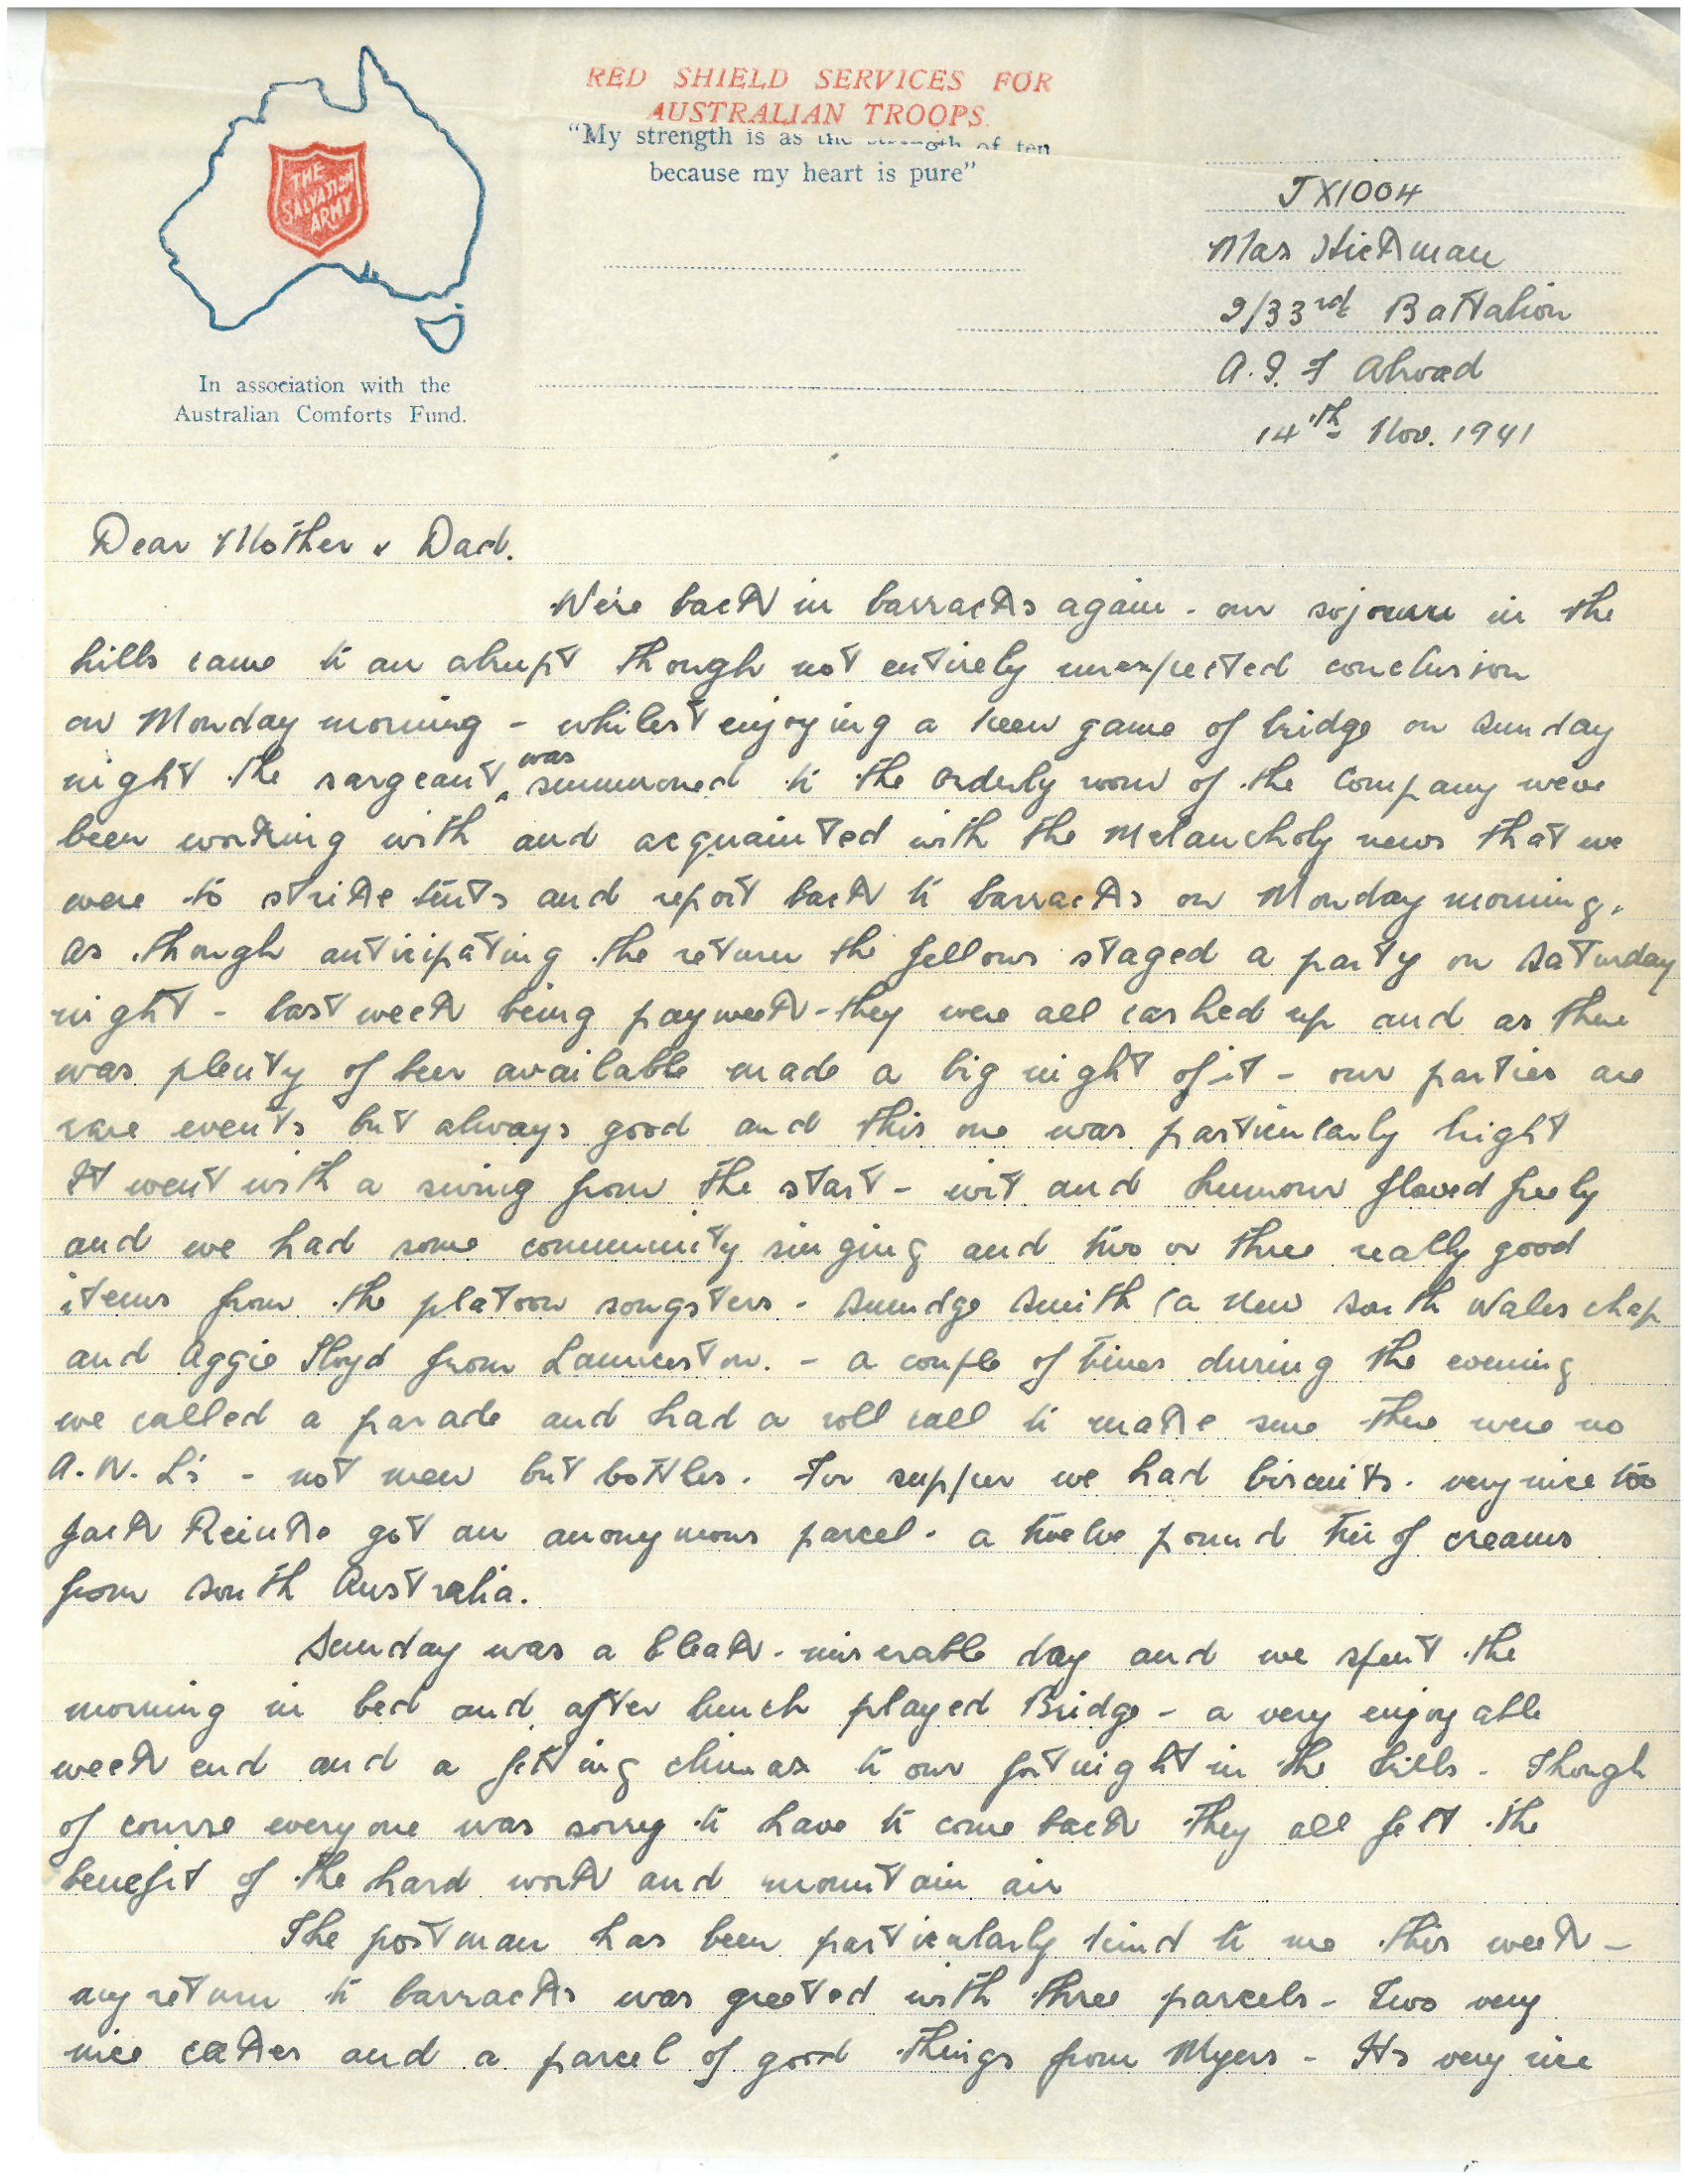 RED SHIELD SERVICES FOR
AUSTRALIAN TROOPS.
"My strength is as the strength of ten
because my heart is pure"
THE
SALVATION
ARMY
In association with the
Australian Comforts Fund.
TX1004
Max Hickman
2/33rd Battalion
A.I.F Abroad
14th Nov. 1941
Dear Mother & Dad.
We're back in barracks again - our sojourn in the
hills came to an abrupt though not entirely unexpected conclusion
on Monday morning - whilest enjoying a keen game of bridge on Sunday
night the sargeant was summoned to the orderly room of the Company weve
been working with and acquainted with the melancholy news that we
were to strike tents and report back to barracks on Monday morning.
As though anticipating the return the fellows staged a party on Saturday
night - last week being payweek - they were all cashed up and as there
was plenty of beer available made a big night of it - our parties are
rare events but always good and this one was particularly bright
It went with a swing from the start - wit and humour flowed freely
and we had some community singing and two or three really good
items from the platoon songsters - Smudge Smith (a New South Wales chap
and Aggie Lloyd from Launceston. - a couple of times during the evening
we called a parade and had a roll call to make sure there were no
A.W.L's - not men but bottles. For supper we had biscuits. very nice too
Jack Reinke got an anonymous parcel - a twelve pound tin of creams
from South Australia.
Sunday was a bleak - miserable day and we spent the
morning in bed and after lunch played Bridge - a very enjoyable
week end and a fitting climax to our fortnight in the hills - Though
of course everyone was sorry to have to come back they all felt the
benefit of the hard work and mountain air
The postman has been particularly kind to me this week -
my return to barracks was greeted with three parcels - Two very
nice cakes and a parcel of good things from Myers - Its very nice